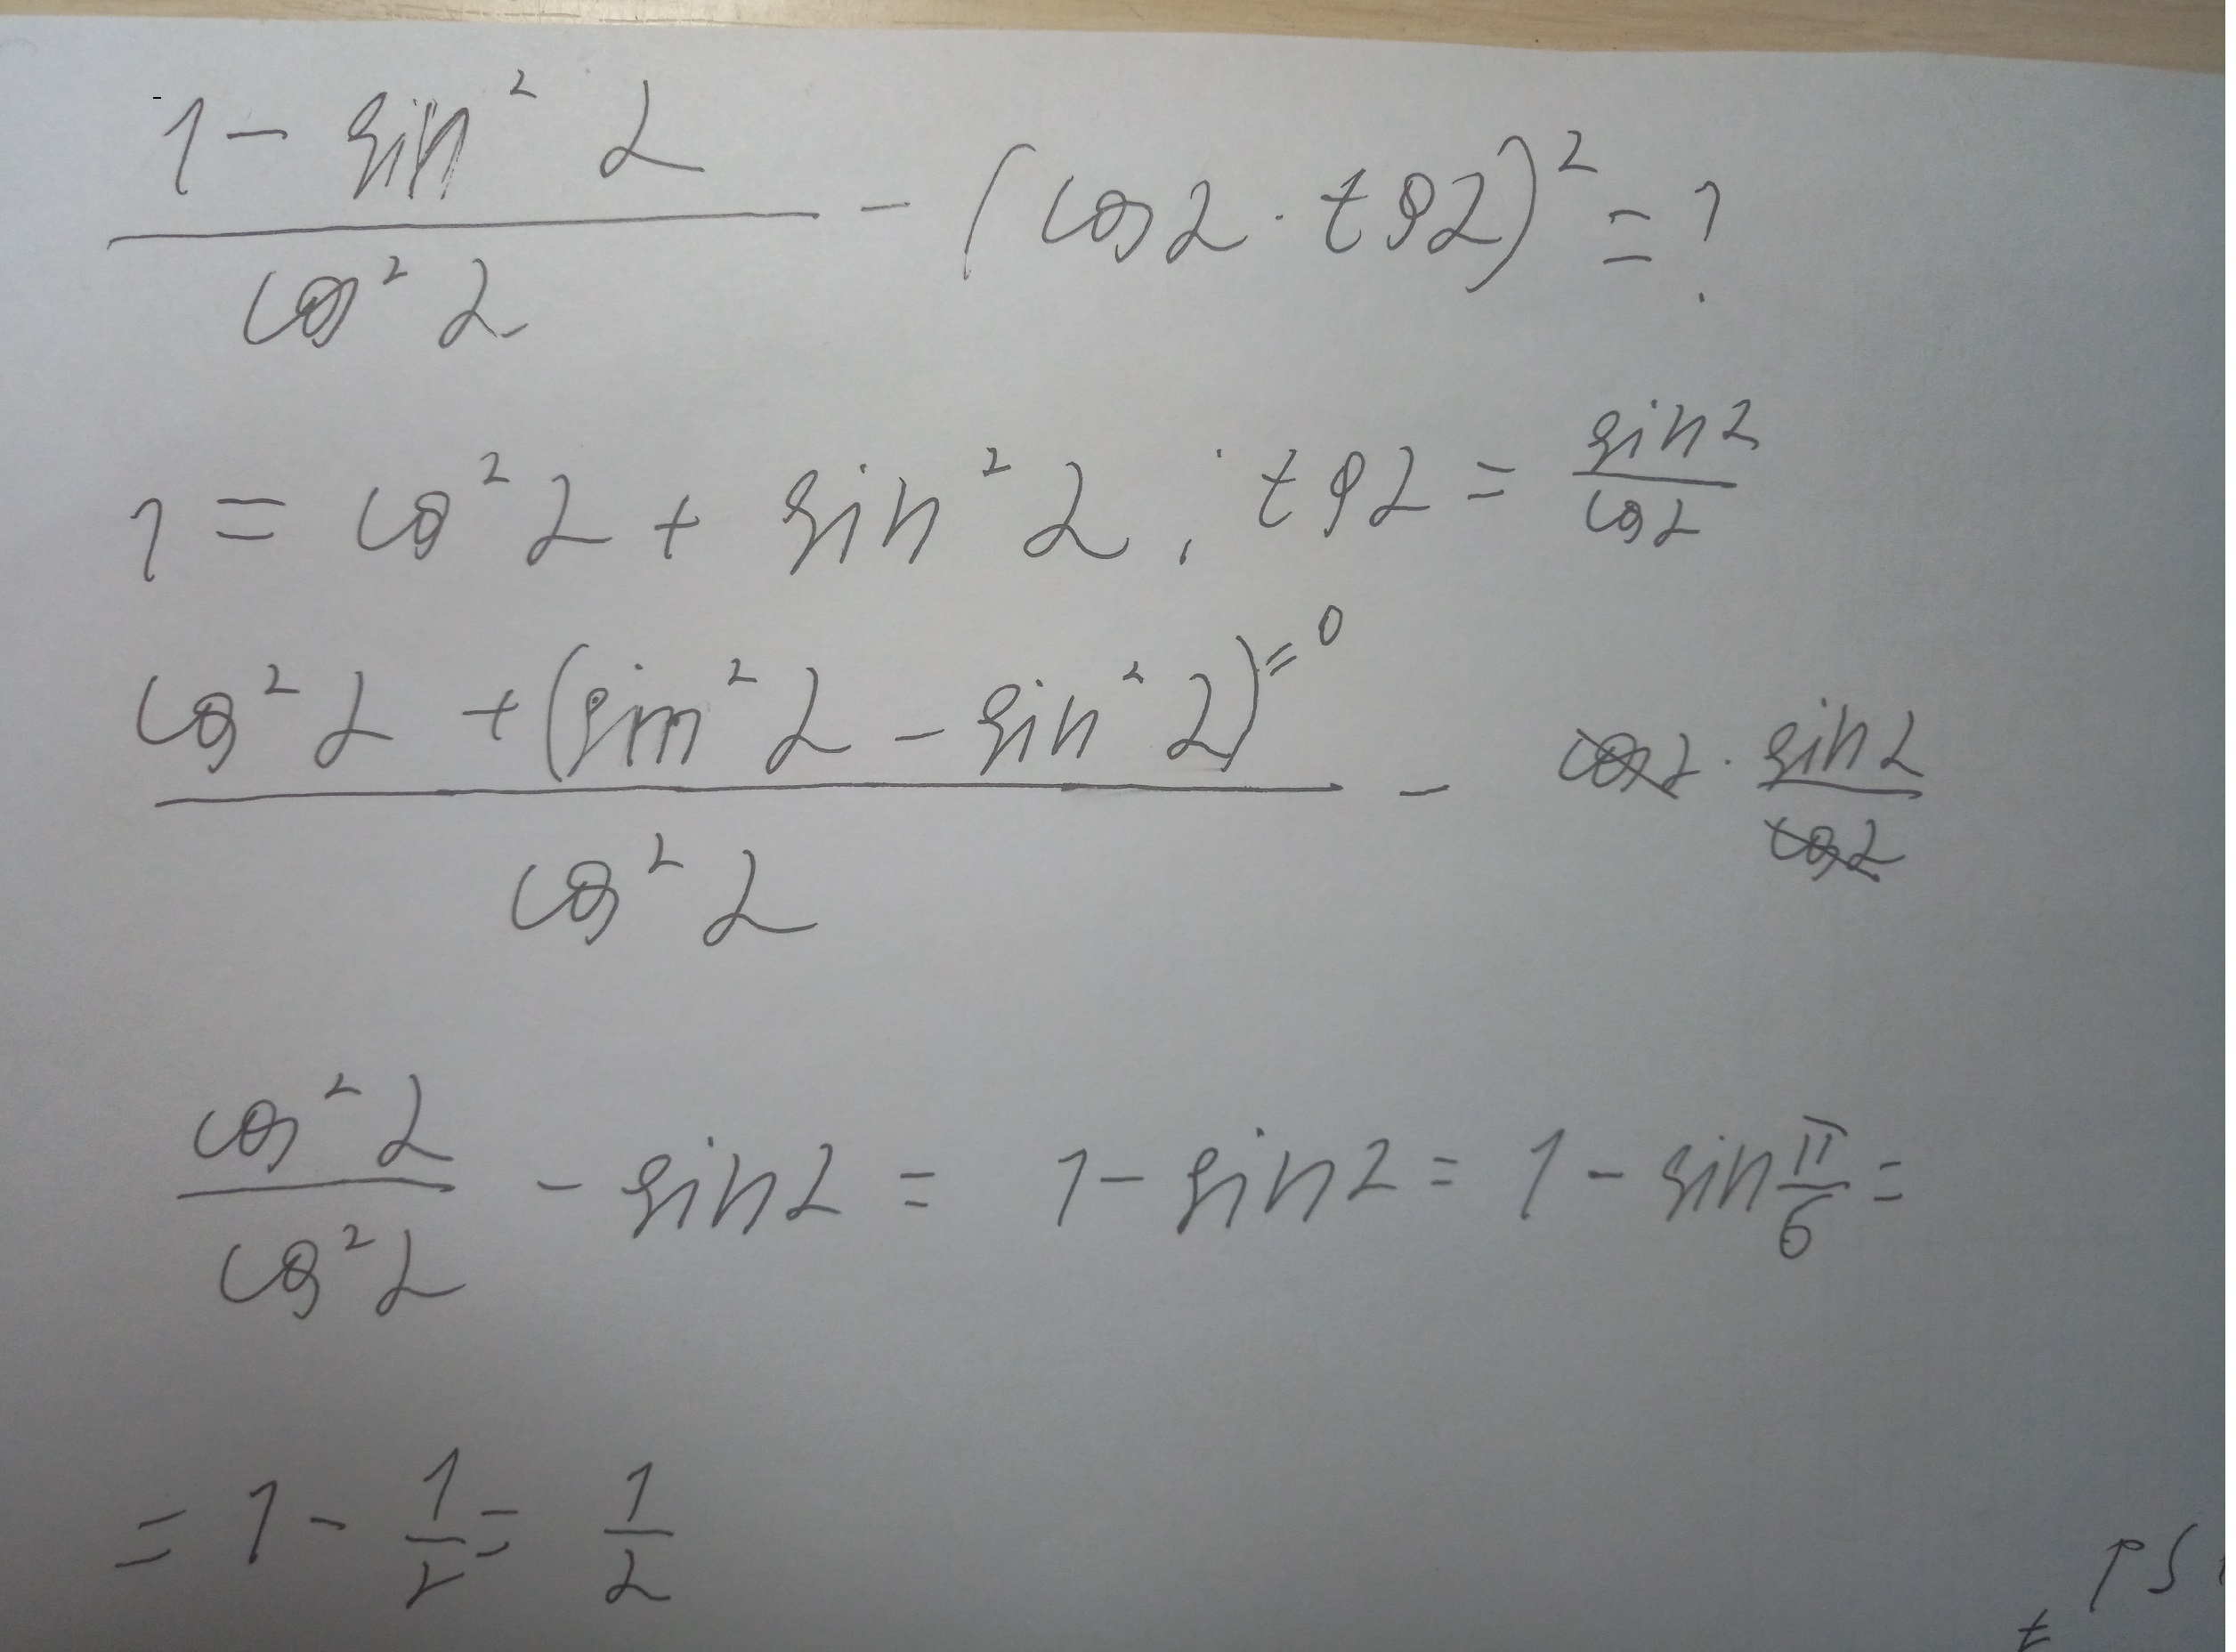 1 - sin² α / cos² α - (cos α · tg α)² = ?
1 = cos² α + sin² α ; tg α = sin α / cos α
cos² α + (sin² α - sin² α) = 0 / cos² α - cos α · sin α / cos α
cos² α / cos² α - sin α = 1 - sin α = 1 - sin π/6 =
= 1 - 1/2 = 1/2